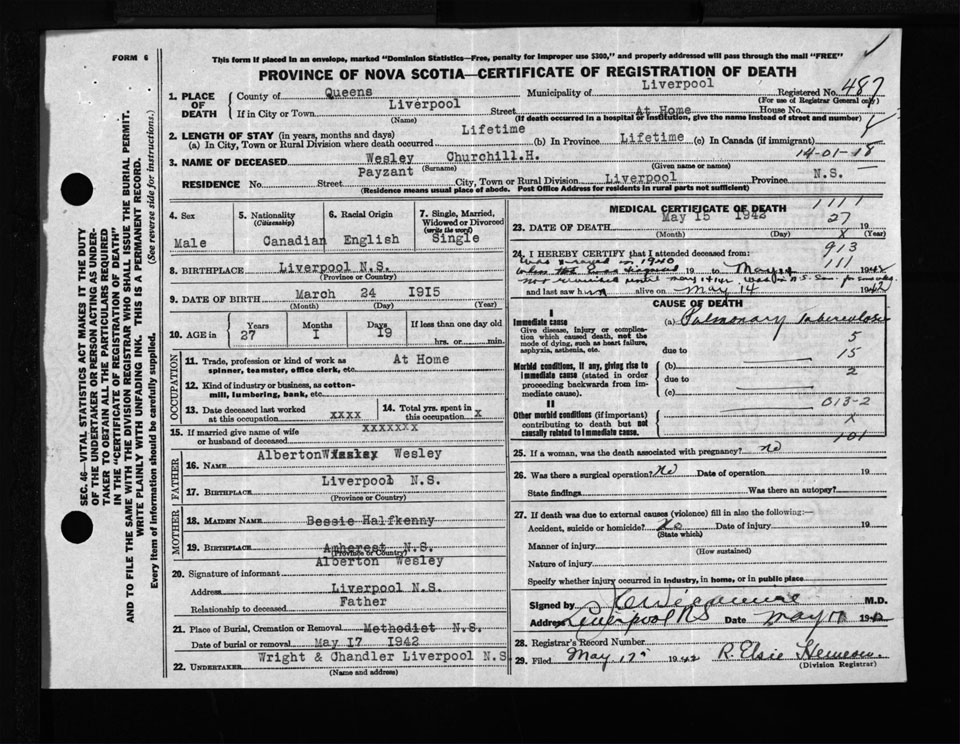 FORM 6
This form if placed in an envelope, marked "Dominion Statistics—Free, penalty for improper use $300," and properly addressed will pass through the mail "FREE"
PROVINCE OF NOVA SCOTIA—CERTIFICATE OF REGISTRATION OF DEATH
SEC. 46—VITAL STATISTICS ACT MAKES IT THE DUTY
OF THE UNDERTAKER OR PERSON ACTING AS UNDER-
TAKER TO OBTAIN ALL THE PARTICULARS REQUIRED
IN THE "CERTIFICATE OF REGISTRATION OF DEATH"
AND TO FILE THE SAME WITH THE DIVISION REGISTRAR WHO SHALL ISSUE THE BURIAL PERMIT.
WRITE PLAINLY WITH UNFADING INK. THIS IS A PERMANENT RECORD.
Every item of information should be carefully supplied. (See reverse side for instructions.)
1. PLACE OF DEATH County of Queens Municipality of Liverpool Registered No. 487
(For use of Registrar General only)
If in City or Town Liverpool Street At Home House No.
(Name) (If death occurred in a hospital or institution, give the name instead of street and number)
2. LENGTH OF STAY (in years, months and days)
(a) In City, Town or Rural Division where death occurred Lifetime (b) In Province Lifetime (c) In Canada (if immigrant)
14-01-18
3. NAME OF DECEASED Wesley Churchill.H.
(Surname) (Given name or names)
RESIDENCE No. Street Payzant City, Town or Rural Division Liverpool Province N.S.
(Residence means usual place of abode. Post Office Address for residents in rural parts not sufficient)
4. Sex Male
5. Nationality (Citizenship) Canadian
6. Racial Origin English
7. Single, Married, Widowed or Divorced (write the word) Single
8. BIRTHPLACE Liverpool N.S.
(Province or Country)
9. DATE OF BIRTH March 24 1915
(Month) (Day) (Year)
10. AGE in Years 27 Months 1 Days 19 If less than one day old hrs. or min.
OCCUPATION
11. Trade, profession or kind of work as spinner, teamster, office clerk, etc. At Home
12. Kind of industry or business, as cotton-mill, lumbering, bank, etc.
13. Date deceased last worked at this occupation xxxx
14. Total yrs. spent in this occupation x
15. If married give name of wife or husband of deceased xxxxxxx
FATHER
16. NAME Alberton Wesley
17. BIRTHPLACE Liverpool N.S.
(Province or Country)
MOTHER
18. MAIDEN NAME Bessie Halfkenny
19. BIRTHPLACE Amherst N.S.
(Province or Country)
20. Signature of informant Alberton Wesley
Address Liverpool N.S.
Relationship to deceased Father
21. Place of Burial, Cremation or Removal Methodist N.S.
Date of burial or removal May 17 1942
22. UNDERTAKER Wright & Chandler Liverpool N.S.
(Name and address)
MEDICAL CERTIFICATE OF DEATH 1111
23. DATE OF DEATH May 15 1942 27
(Month) (Day) (Year)
x
24. I HEREBY CERTIFY that I attended deceased from: 913
was x-rayed in 1940 111
19 to 1942
and last saw him alive on May 14 1942
CAUSE OF DEATH
I
Immediate cause (a) Pulmonary tuberculosis
Give disease, injury or complication which caused death, not the mode of dying, such as heart failure, asphyxia, asthenia, etc.
5
due to 15
Morbid conditions, if any, giving rise to immediate cause (stated in order proceeding backwards from immediate cause). (b) 2
due to
(c)
II
013-2
Other morbid conditions (if important) contributing to death but not causally related to immediate cause.
x
101
25. If a woman, was the death associated with pregnancy? no
26. Was there a surgical operation? No Date of operation 19
State findings Was there an autopsy?
27. If death was due to external causes (violence) fill in also the following:—
Accident, suicide or homicide? No Date of injury 19
(State which)
Manner of injury
(How sustained)
Nature of injury
Specify whether injury occurred in industry, in home, or in public place
Signed by M.D.
Address Liverpool NS Date May 17 1942
28. Registrar's Record Number
29. Filed May 17 1942 R. Elsie
(Division Registrar)